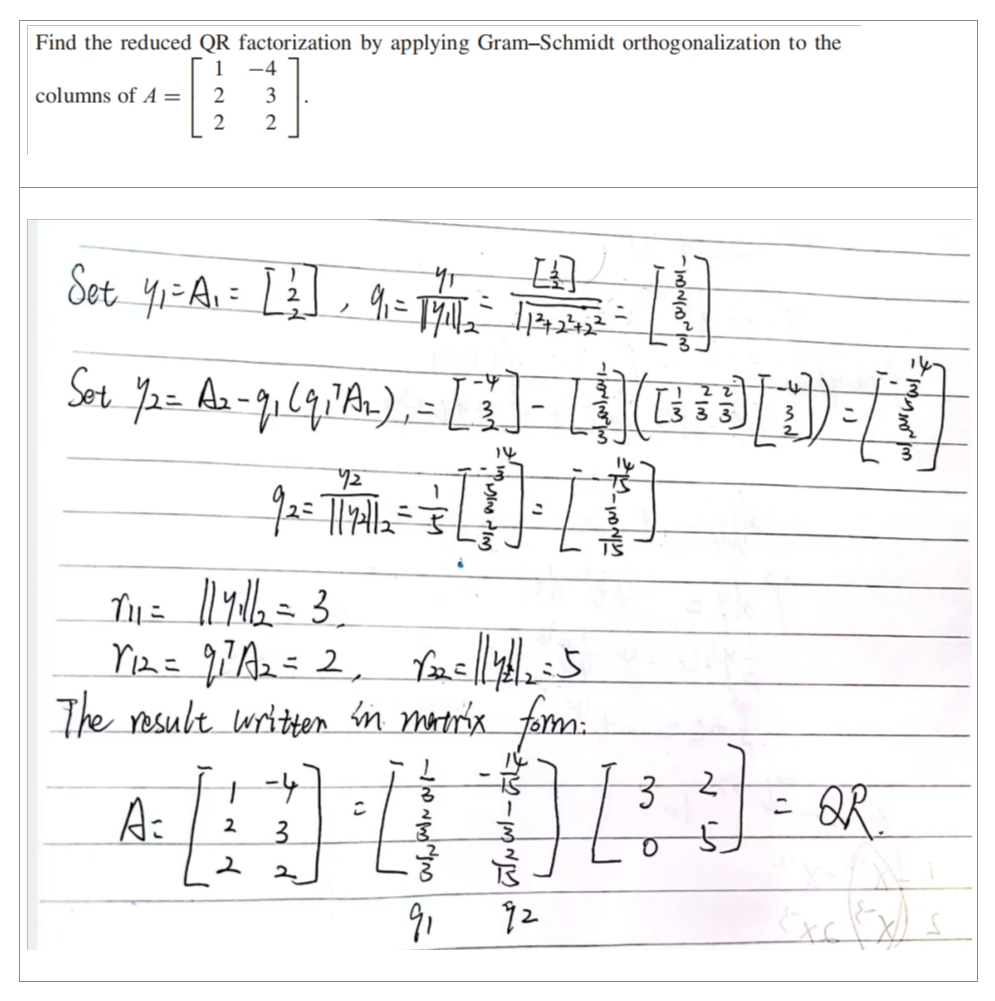 Find the reduced QR factorization by applying Gram–Schmidt orthogonalization to the
columns of A = [1 −4; 2 3; 2 2].
Set y₁ = A₁ = [1; 2; 2], q₁ = y₁/||y₁||₂ = [1; 2; 2]/√(1²+2²+2²) = [1/3; 2/3; 2/3]
Set y₂ = A₂ - q₁(q₁ᵀA₂), = [-4; 3; 2] - [1/3; 2/3; 2/3]([1/3 2/3 2/3][-4; 3; 2]) = [-14/3; 5/3; 2/3]
q₂ = y₂/||y₂||₂ = 1/5 [-14/3; 5/3; 2/3] = [-14/15; 1/3; 2/15]
r₁₁ = ||y₁||₂ = 3.
r₁₂ = q₁ᵀA₂ = 2, r₂₂ = ||y₂||₂ = 5
The result written in matrix form:
A = [1 -4; 2 3; 2 2] = [1/3 -14/15; 2/3 1/3; 2/3 2/15] [3 2; 0 5] = QR.
q₁ q₂